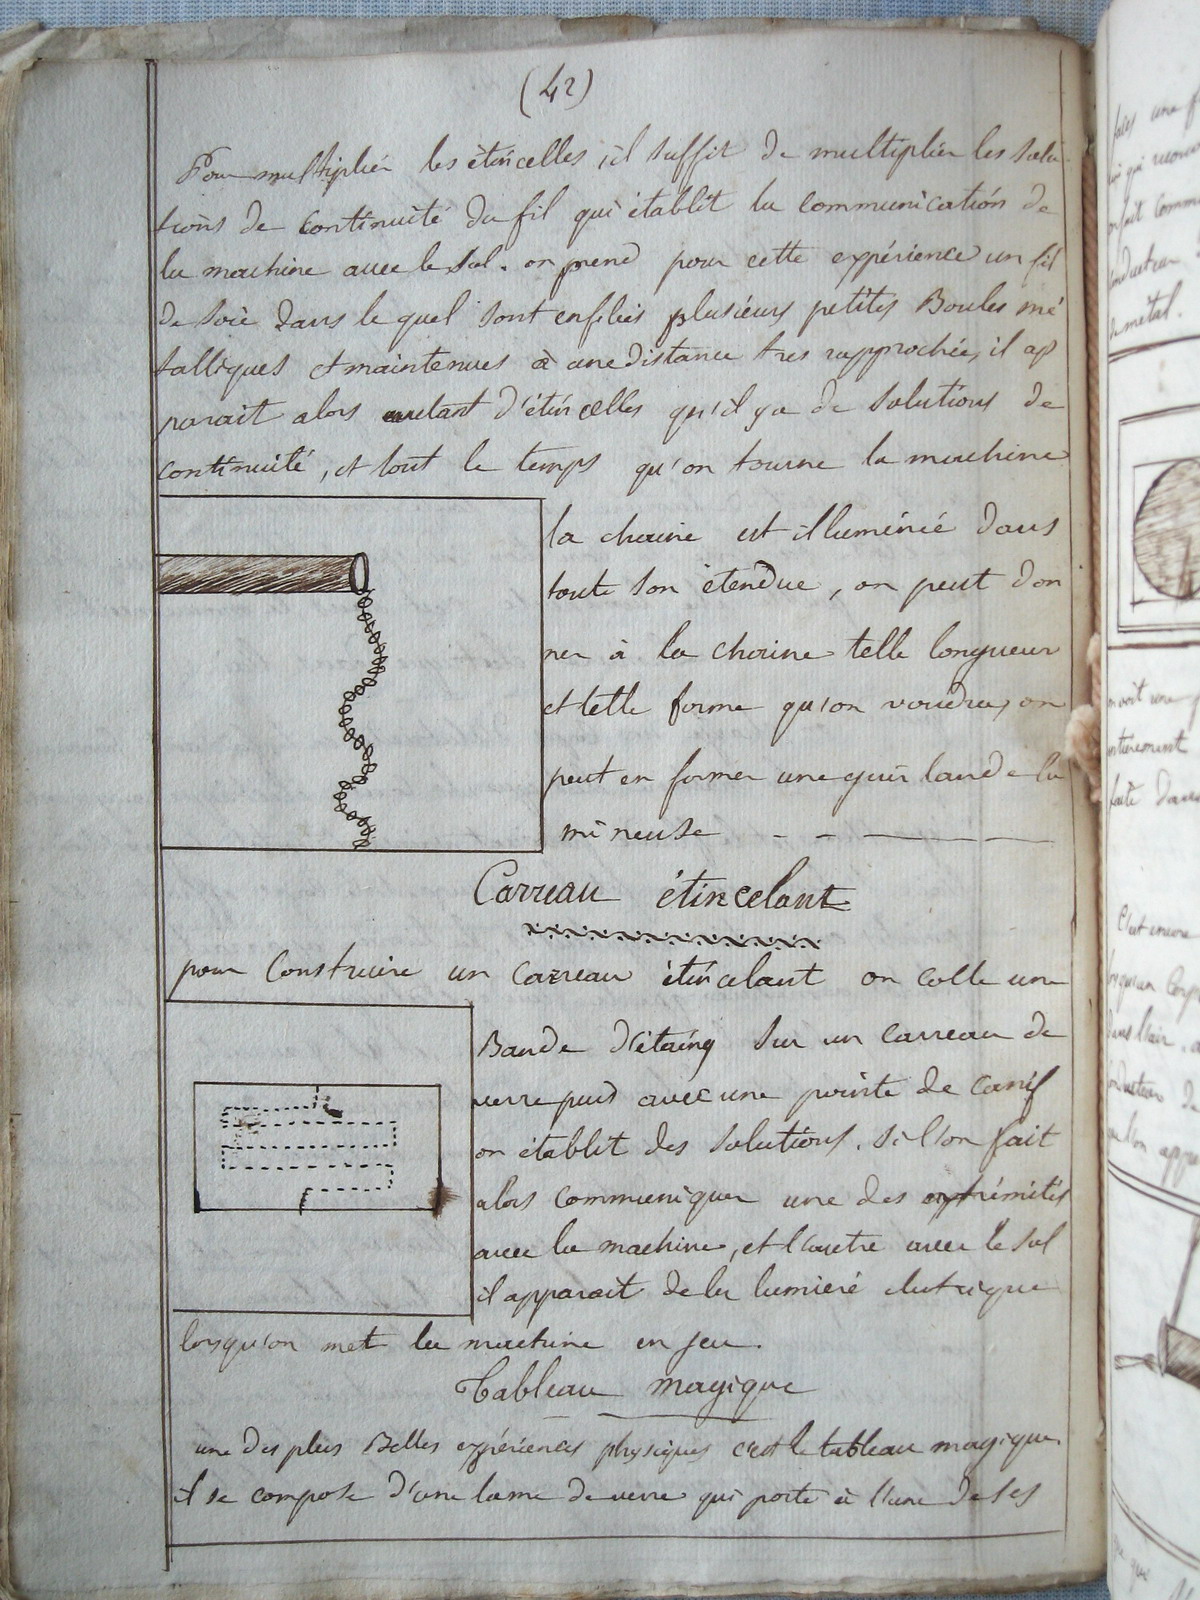 (42)
Pour multiplier les étincelles il suffit de multiplier les solu
tions de continuité du fil qui établit la communication de
la machine avec le sol. on prend pour cette expérience un fil
de soie dans le quel sont enfilées plusieurs petites Boules mé
talliques et maintenues à une distance tres rapprochée, il ap
parait alors autant d'étincelles qu'il y a de solutions de
continuité, et tout le temps qu'on tourne la machine
la chaine est illuminée dans
toute son étendue, on peut don
ner à la chaine telle longueur
et telle forme qu'on voudra, on
peut en former une guirlande lu
mineuse
Carreau étincelant
pour Construire un carreau étincelant on colle une
Bande d'étaing sur un carreau de
verre puis avec une pointe de canif
on établit des solutions. si l'on fait
alors communiquer une des extrémités
avec la machine, et l'autre avec le sol
il apparait de la lumière électrique
lorsqu'on met la machine en jeu.
Tableau magique
une des plus Belles expériences physiques c'est le tableau magique.
il se compose d'une lame de verre qui porte à l'une de ses
de métal.
C'est encore